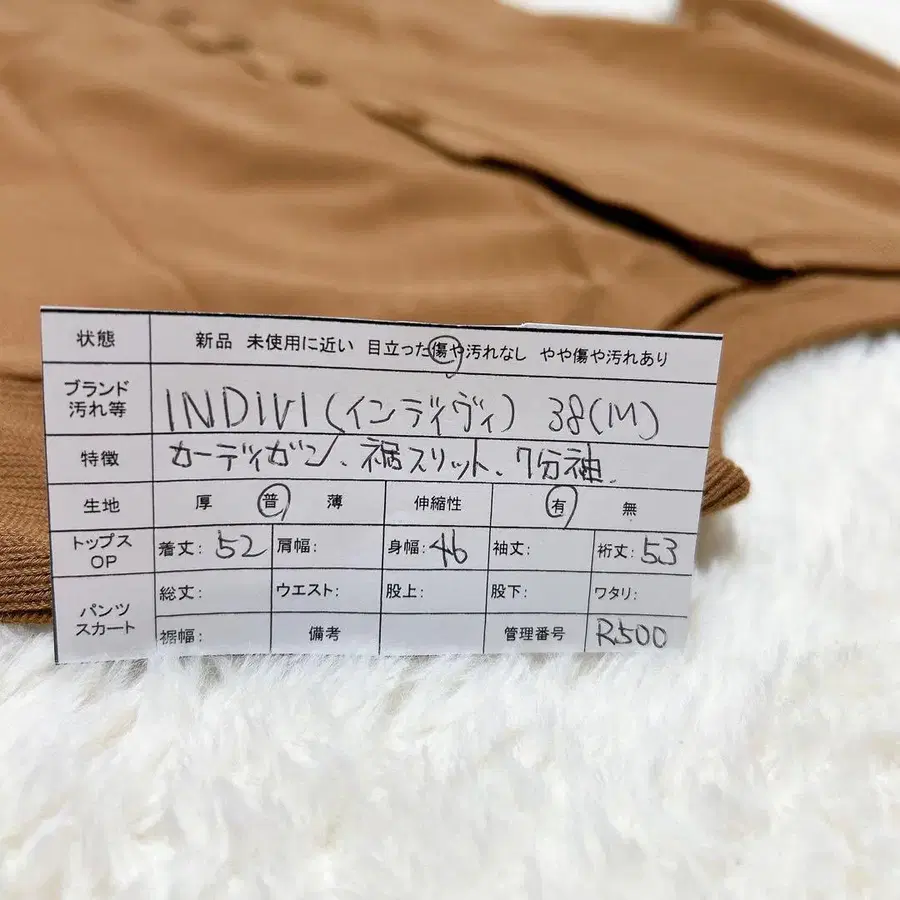 状態 新品 未使用に近い 目立った傷や汚れなし やや傷や汚れあり
ブランド
汚れ等 INDIVI(インディヴィ) 38(M)
特徴 カーディガン、裾スリット、7分袖
生地 厚 普 薄 伸縮性 有 無
トップス
OP 着丈: 52 肩幅: 身幅: 46 袖丈: 裄丈: 53
パンツ
スカート 総丈: ウエスト: 股上: 股下: ワタリ:
裾幅: 備考 管理番号 R500